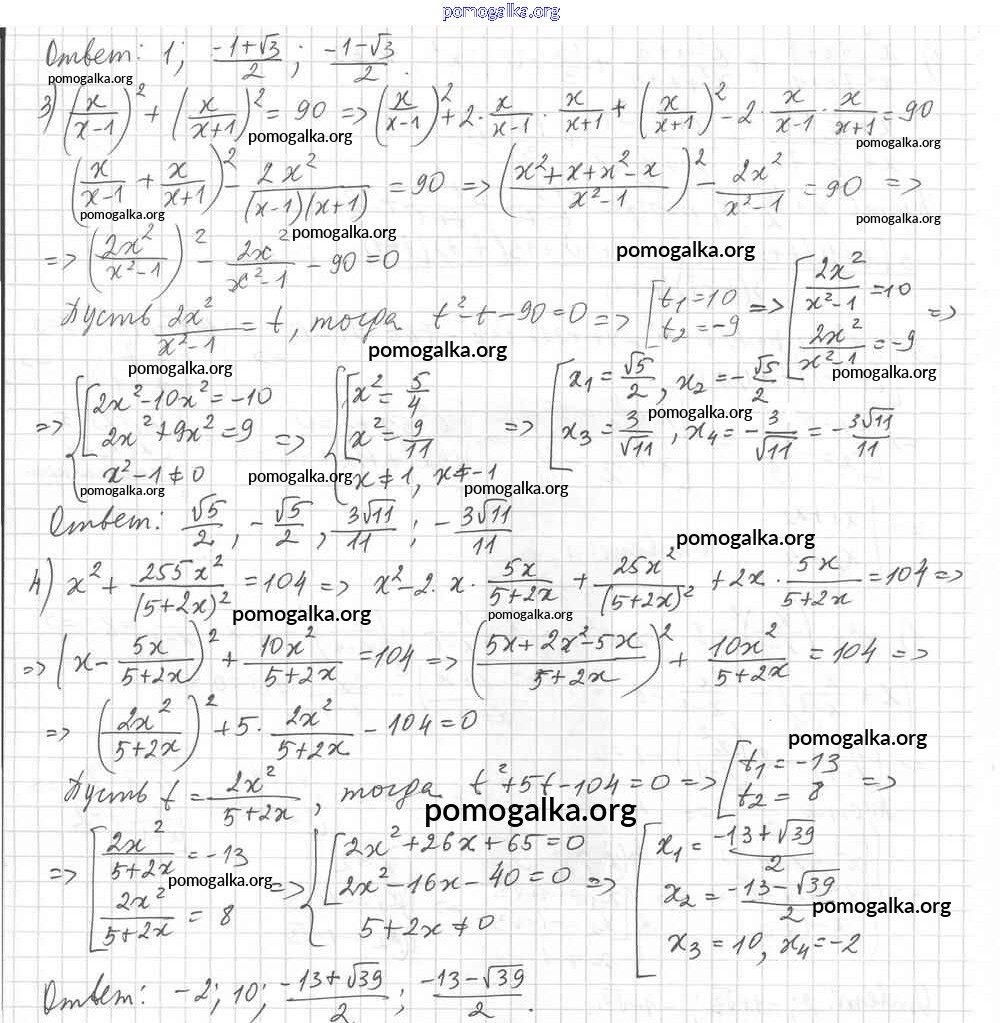 pomogalka.org
Ответ: 1; (-1+√3)/2; (-1-√3)/2.
pomogalka.org
3) (x/(x-1))² + (x/(x+1))² = 90 => (x/(x-1))² + 2·x/(x-1)·x/(x+1) + (x/(x+1))² - 2·x/(x-1)·x/(x+1) = 90
pomogalka.org pomogalka.org
(x/(x-1) + x/(x+1))² - 2x²/((x-1)(x+1)) = 90 => ((x²+x+x²-x)/(x²-1))² - 2x²/(x²-1) = 90 =>
pomogalka.org pomogalka.org
pomogalka.org pomogalka.org
=> (2x²/(x²-1))² - 2x²/(x²-1) - 90 = 0
Пусть 2x²/(x²-1) = t, тогда t²-t-90=0 => [t₁=10 t₂=-9 => [2x²/(x²-1)=10 2x²/(x²-1)=-9 =>
pomogalka.org pomogalka.org pomogalka.org
=> {[2x²-10x²=-10 2x²+9x²=9 x²-1≠0 => {[x²=5/4 x²=9/11 x≠1, x≠-1 => [x₁=√5/2, x₂=-√5/2 x₃=3/√11, x₄=-3/√11=-3√11/11
pomogalka.org
pomogalka.org pomogalka.org pomogalka.org
Ответ: √5/2, -√5/2, 3√11/11; -3√11/11
pomogalka.org
4) x² + 255x²/(5+2x)² = 104 => x²-2·x·5x/(5+2x) + 25x²/(5+2x)² + 2x·5x/(5+2x) = 104 =>
pomogalka.org pomogalka.org
=> (x - 5x/(5+2x))² + 10x²/(5+2x) = 104 => ((5x+2x²-5x)/(5+2x))² + 10x²/(5+2x) = 104 =>
=> (2x²/(5+2x))² + 5·2x²/(5+2x) - 104 = 0
pomogalka.org
Пусть t = 2x²/(5+2x), тогда t²+5t-104=0 => [t₁=-13 t₂=8 =>
pomogalka.org
=> [2x²/(5+2x)=-13 2x²/(5+2x)=8 => {[2x²+26x+65=0 2x²-16x-40=0 5+2x≠0 => [x₁=(-13+√39)/2 x₂=(-13-√39)/2 x₃=10, x₄=-2
pomogalka.org pomogalka.org
Ответ: -2; 10; (-13+√39)/2; (-13-√39)/2.